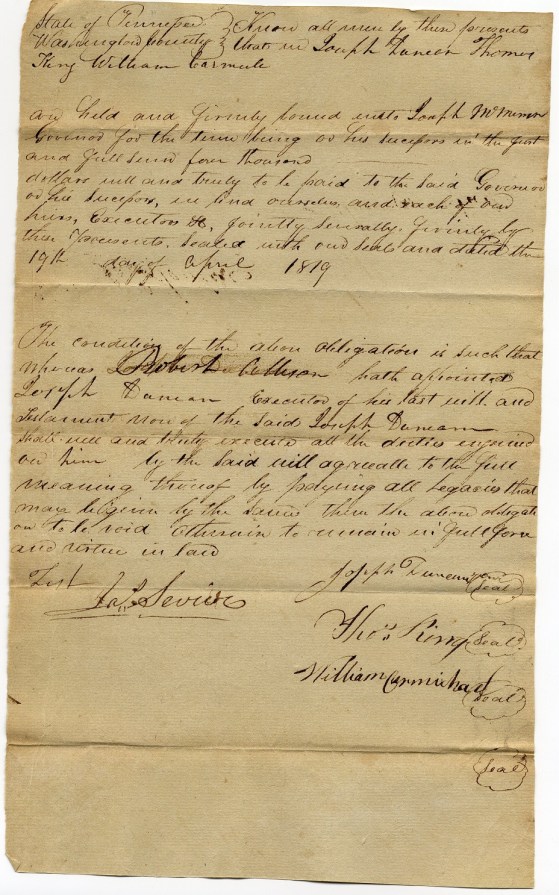 State of Tennessee } Know all men by these presents
Washington County } that we Joseph Duncan Thomas
King William Carmicle
are held and firmly bound unto Joseph McMinn
Governor for the time being or his sucsesors in the just
and full sum four thousand
dollars well and truly to be paid to the said Governor
or his sucsesors, we bind ourselves and each of our
heirs, Executors &c, jointly severally firmly by
these Presents, sealed with our seals and dated this
19th day of April 1819
The condition of the above obligation is such that
whereas Robert Allison hath appointed
Joseph Duncan Executor of his last will and
Testament now if the said Joseph Duncan
shall well and truly execute all the duties enjoined
on him by the said will agreeable to the full
meaning thereof by paying all Legacies that
may be given by the same then the above obligati
on to be void otherwise to remain in full force
and virtue in law
Test Joseph Duncan Seal
Jas Sevier
Thos King Seal
William Carmichael Seal
Seal